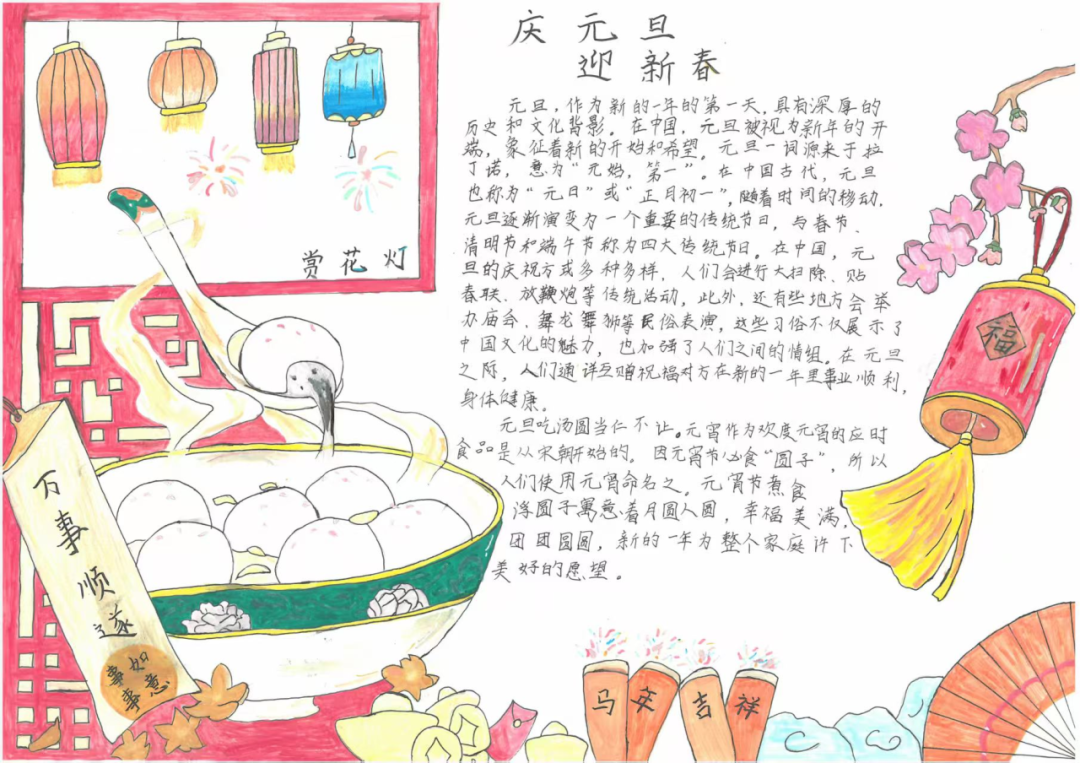 庆元旦
迎新春
元旦,作为新的一年的第一天,具有深厚的
历史和文化背影。在中国,元旦被视为新年的开
端,象征着新的开始和希望。元旦一词源来于拉
丁诺,意为“元始,第一”。在中国古代,元旦
也称为“元日”或“正月初一”,随着时间的移动.
元旦逐渐演变为一个重要的传统节日,与春节、
清明节和端午节称为四大传统节日。在中国,元
旦的庆祝方式多种多样,人们会进行大扫除、贴
春联、放鞭炮等传统活动,此外,还有些地方会举
办庙会、舞龙舞狮等民俗表演,这些习俗不仅展示了
中国文化的魅力,也加强了人们之间的情组。在元旦
之际,人们通详互赠祝福对方在新的一年里事业顺利,
身体健康。
元旦吃汤圆当仁不让。元宵作为欢度元宵的应时
食品是从宋朝开始的。因元宵节必食“圆子”,所以
人们使用元宵命名之。元宵节煮食
浮圆子寓意着月圆人圆,幸福美满,
团团圆圆,新的一年为整个家庭许下
美好的愿望。
赏花灯
万事顺遂
事事如意
福
马年吉祥